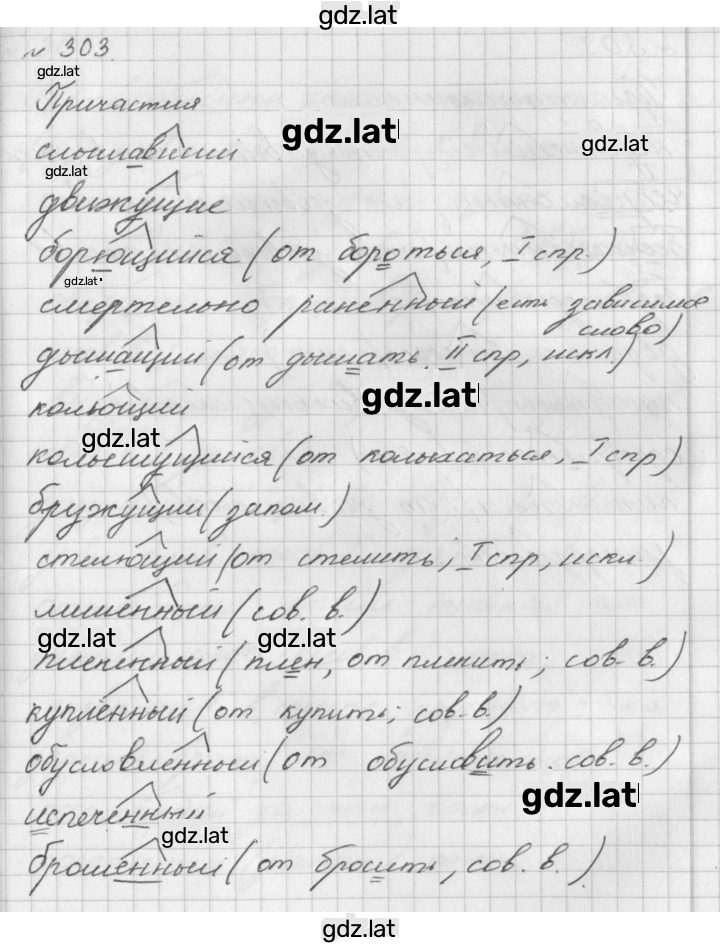 gdz.lat
№ 303.
gdz.lat
Причастия
gdz.lat
gdz.lat
слышавший
gdz.lat
движущие
борющийся (от бороться, I спр.)
gdz.lat
смертельно раненный (есть зависимое
слово)
дышащий (от дышать. II спр, искл.)
gdz.lat
колющий
gdz.lat
колышущийся (от колыхаться, I спр)
брузжущий (запом.)
стелющий (от стелить; I спр, искл.)
лишённый (сов. в.)
gdz.lat
gdz.lat
пленённый (плен, от пленить; сов. в.)
купленный (от купить; сов. в.)
обусловленный (от обусловить. сов. в.)
gdz.lat
испечённый
gdz.lat
брошенный (от бросить, сов. в.)
gdz.lat